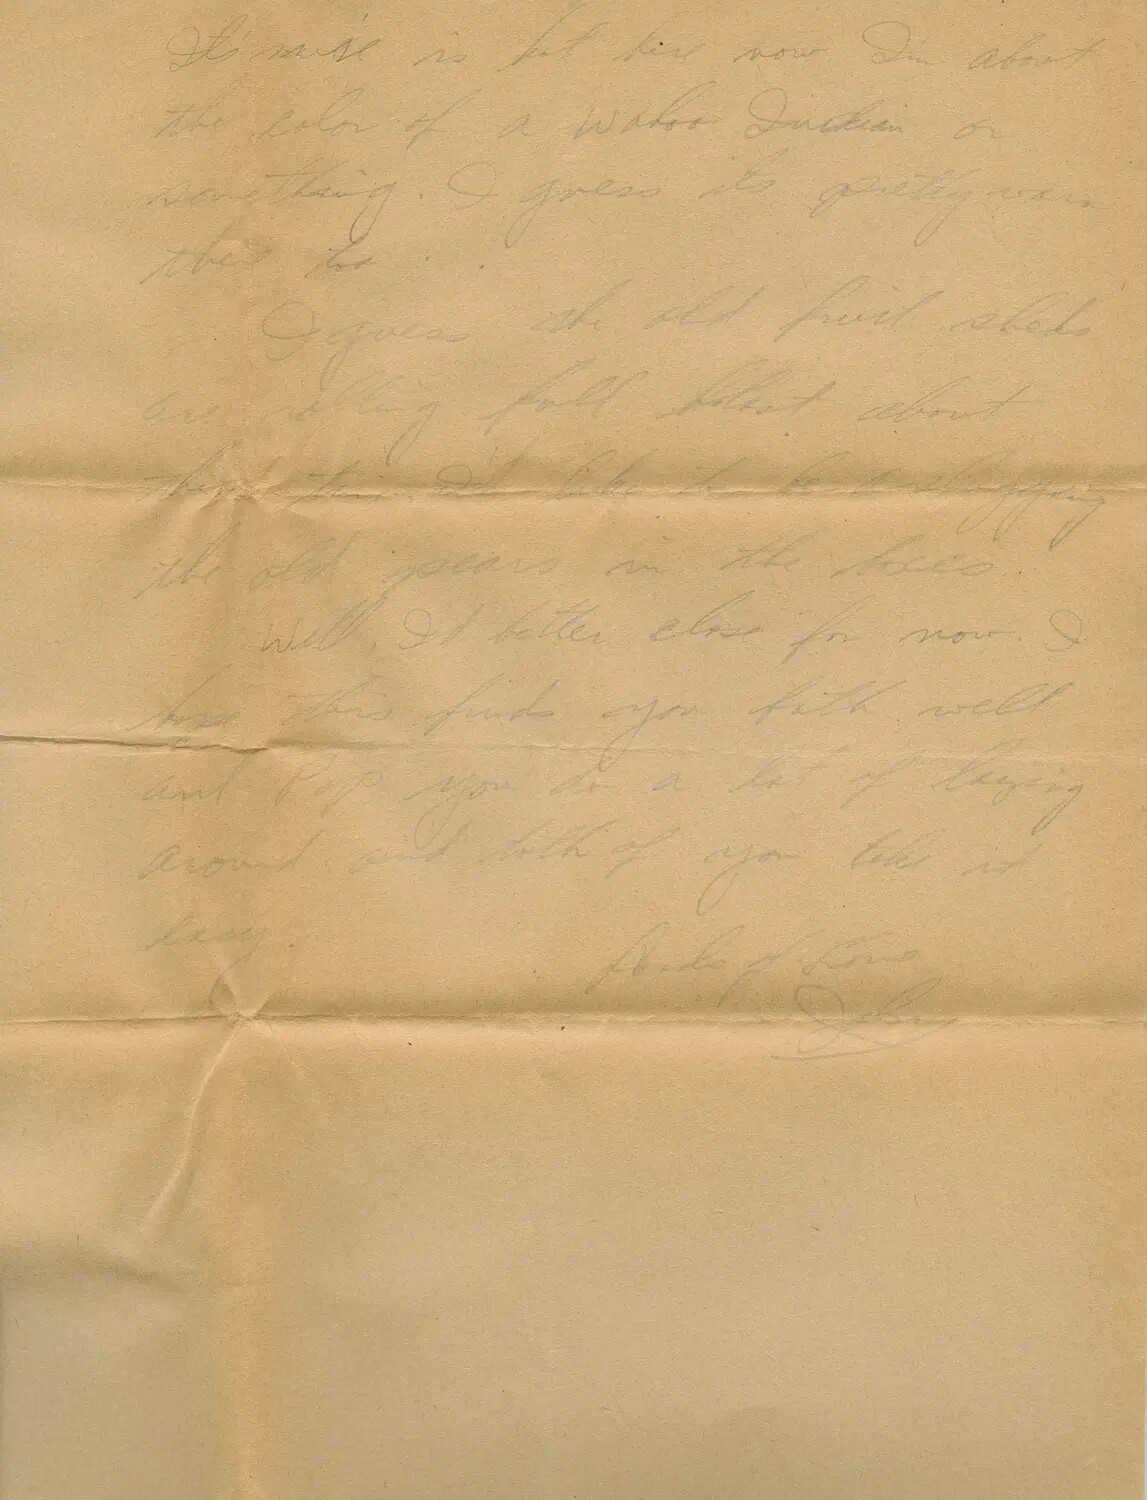 It's nice is hot here now I'm about
the color of a Wahoo Indian or
something. I guess its pretty warm
there too.
I guess the old fruit sheds
are rolling full blast about
this time I'd like to be slinging
the old pears in the boxes.
Well, I'd better close for now. I
hope this finds you both well
and Pop you do a lot of lazing
around and both of you take it
easy.
Loads of Love
John